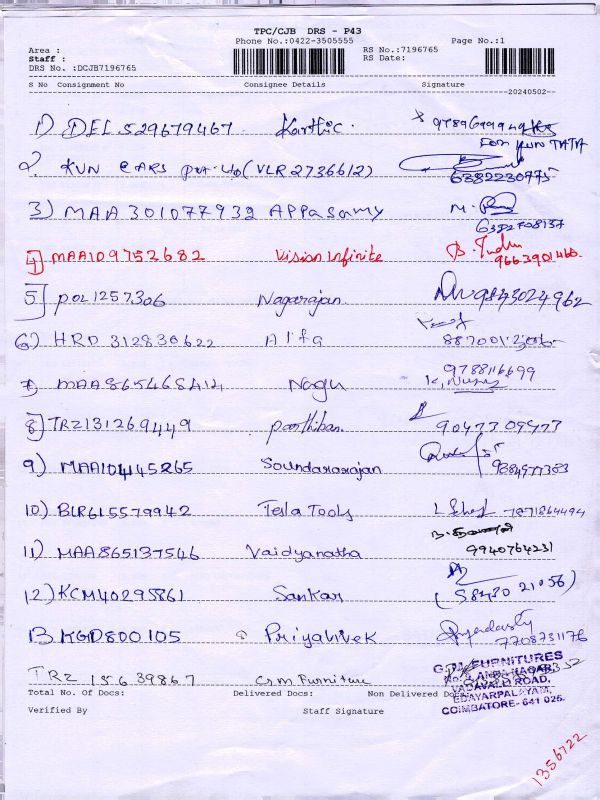 TPC/CJB DRS - P43
Phone No.:0422-3505555
Page No.:1
Area :
Staff :
DRS No. :DCJB7196765
RS No.:7196765
RS Date:
S No Consignment No Consignee Details Signature
20240502
1) DEL 529679467 Karthic 9789699949
FOR KUN TATA
2. KUN CARS Pvt. Ltd (VLR 2736612) 6382230775
3) MAA 301077932 Appasamy M.
6382708137
4) MAA109752682 Vision Infinite B. Indhu
9663901466
5) POL1257306 Nagarajan 9843024962
6) HRD 312830622 Alfa
7) MAA865468414 Nagu 9788116699
8) TRZ131269449 Parthiban 9047305473
9) MAA104445265 Soundararajan 9884977383
10) BLR615579942 Tesla Tools 7871864494
11) MAA865137546 Vaidyanatha 9940764231
12) KCM40295861 Sankar (58430 21056)
13 KGD800105 Priyavivek 7708731176
TRZ 15639867 G.M Furniture
Total No. Of Docs: Delivered Docs: Non Delivered Docs
Verified By Staff Signature
FURNITURES
ANNA NAGAR,
VADAVALLI ROAD,
EDAYARPALAYAM,
COIMBATORE- 641 025.
1356722